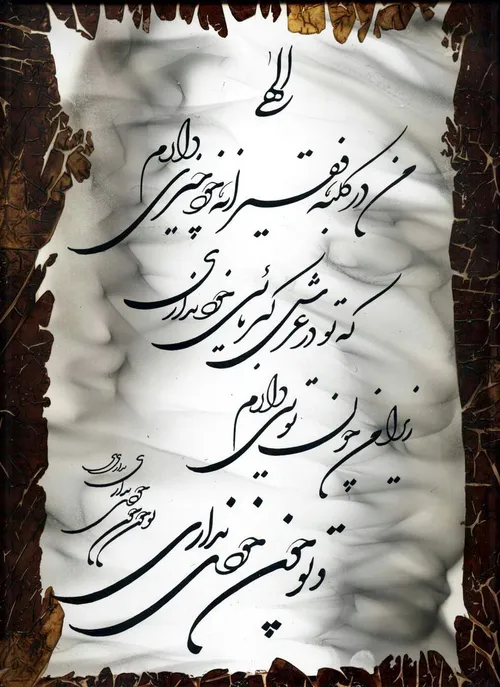 الهی
من در کلبه فقیرانه خود چیزی دارم
که تو در عرش کبریائی خود نداری
زیرا من چون تویی دارم
و تو چون خودی نداری
تو چون خودی نداری نداری